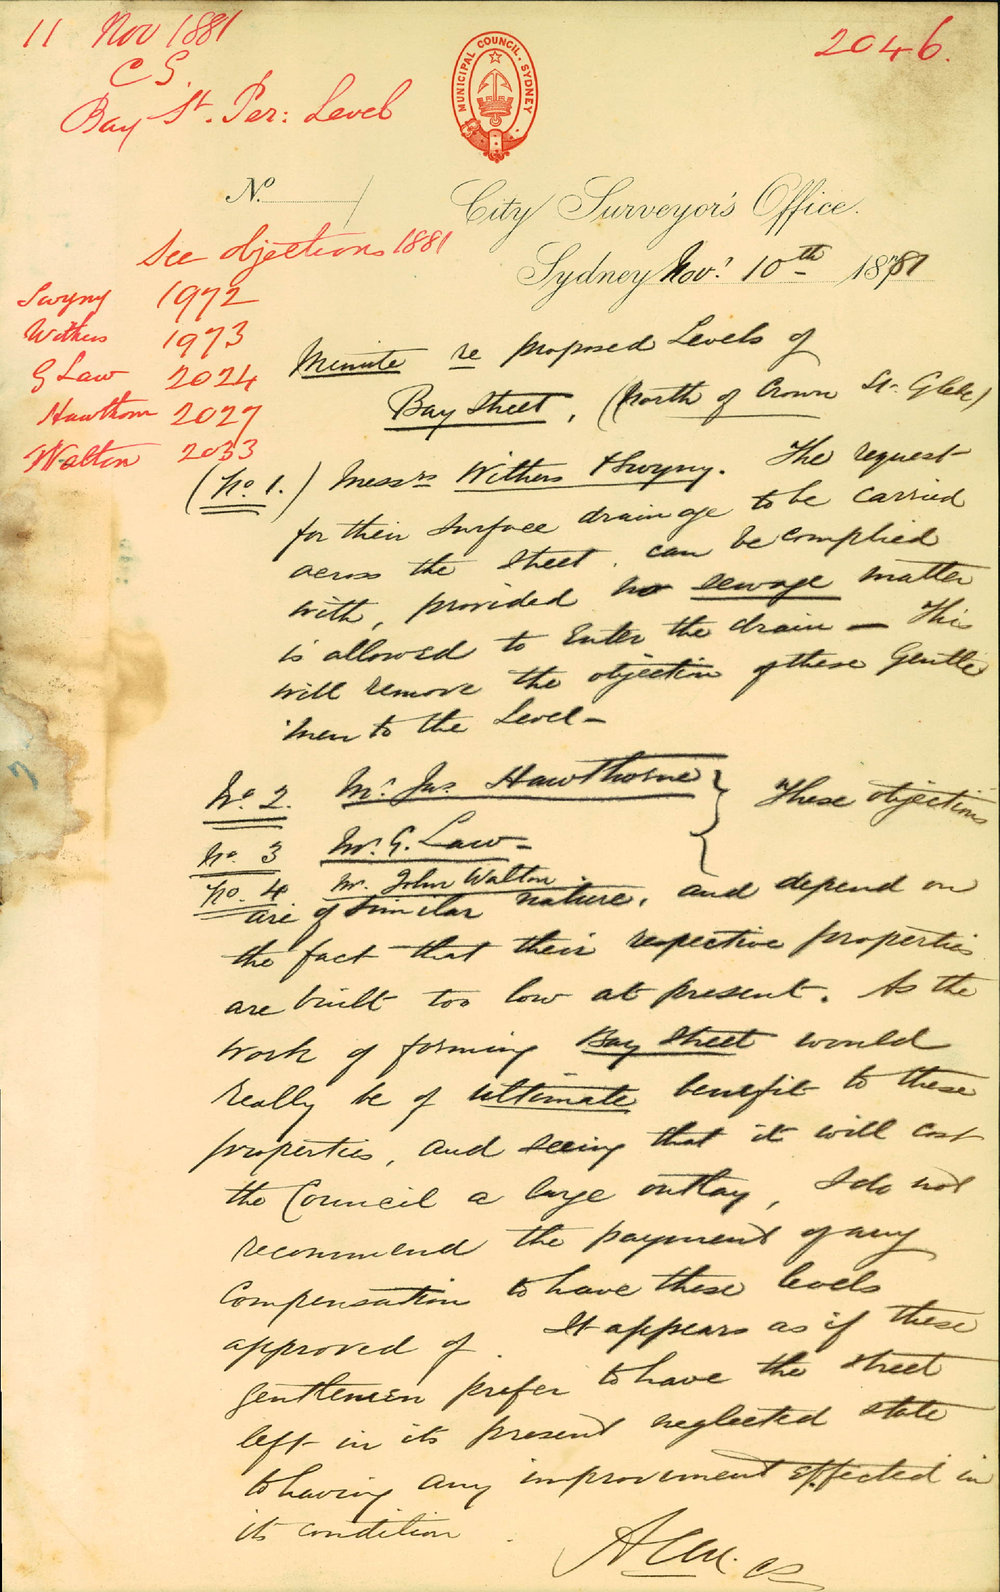 11 Nov 1881
C S.
Bay St. Per: Level
2046.
MUNICIPAL COUNCIL. SYDNEY
No.
City Surveyor's Office.
Sydney Novr. 10th 1881
See objections 1881
Swyny 1972
Withers 1973
G Law 2024
Hawthorn 2027
Walton 2033
Minute re proposed Levels of
Bay Street, (North of Crown St. Glebe)
(No 1.) Messrs Withers & Swyny. The request
for their surface drainage to be carried
across the street, can be complied
with, provided no sewage matter
is allowed to Enter the drain — This
will remove the objection of these Gentle
men to the Level —
No. 2. Mr. Jas. Hawthorne } These objections
No. 3 Mr. G. Law —
No. 4 Mr. John Walton.
are of similar nature, and depend on
the fact that their respective properties
are built too low at present. As the
work of forming Bay Street would
really be of ultimate benefit to these
properties, and seeing that it will cost
the Council a large outlay, I do not
recommend the payment of any
Compensation to have these levels
approved of. It appears as if these
gentlemen prefer to have the street
left in its present neglected state
to having any improvement effected in
its condition.
CS